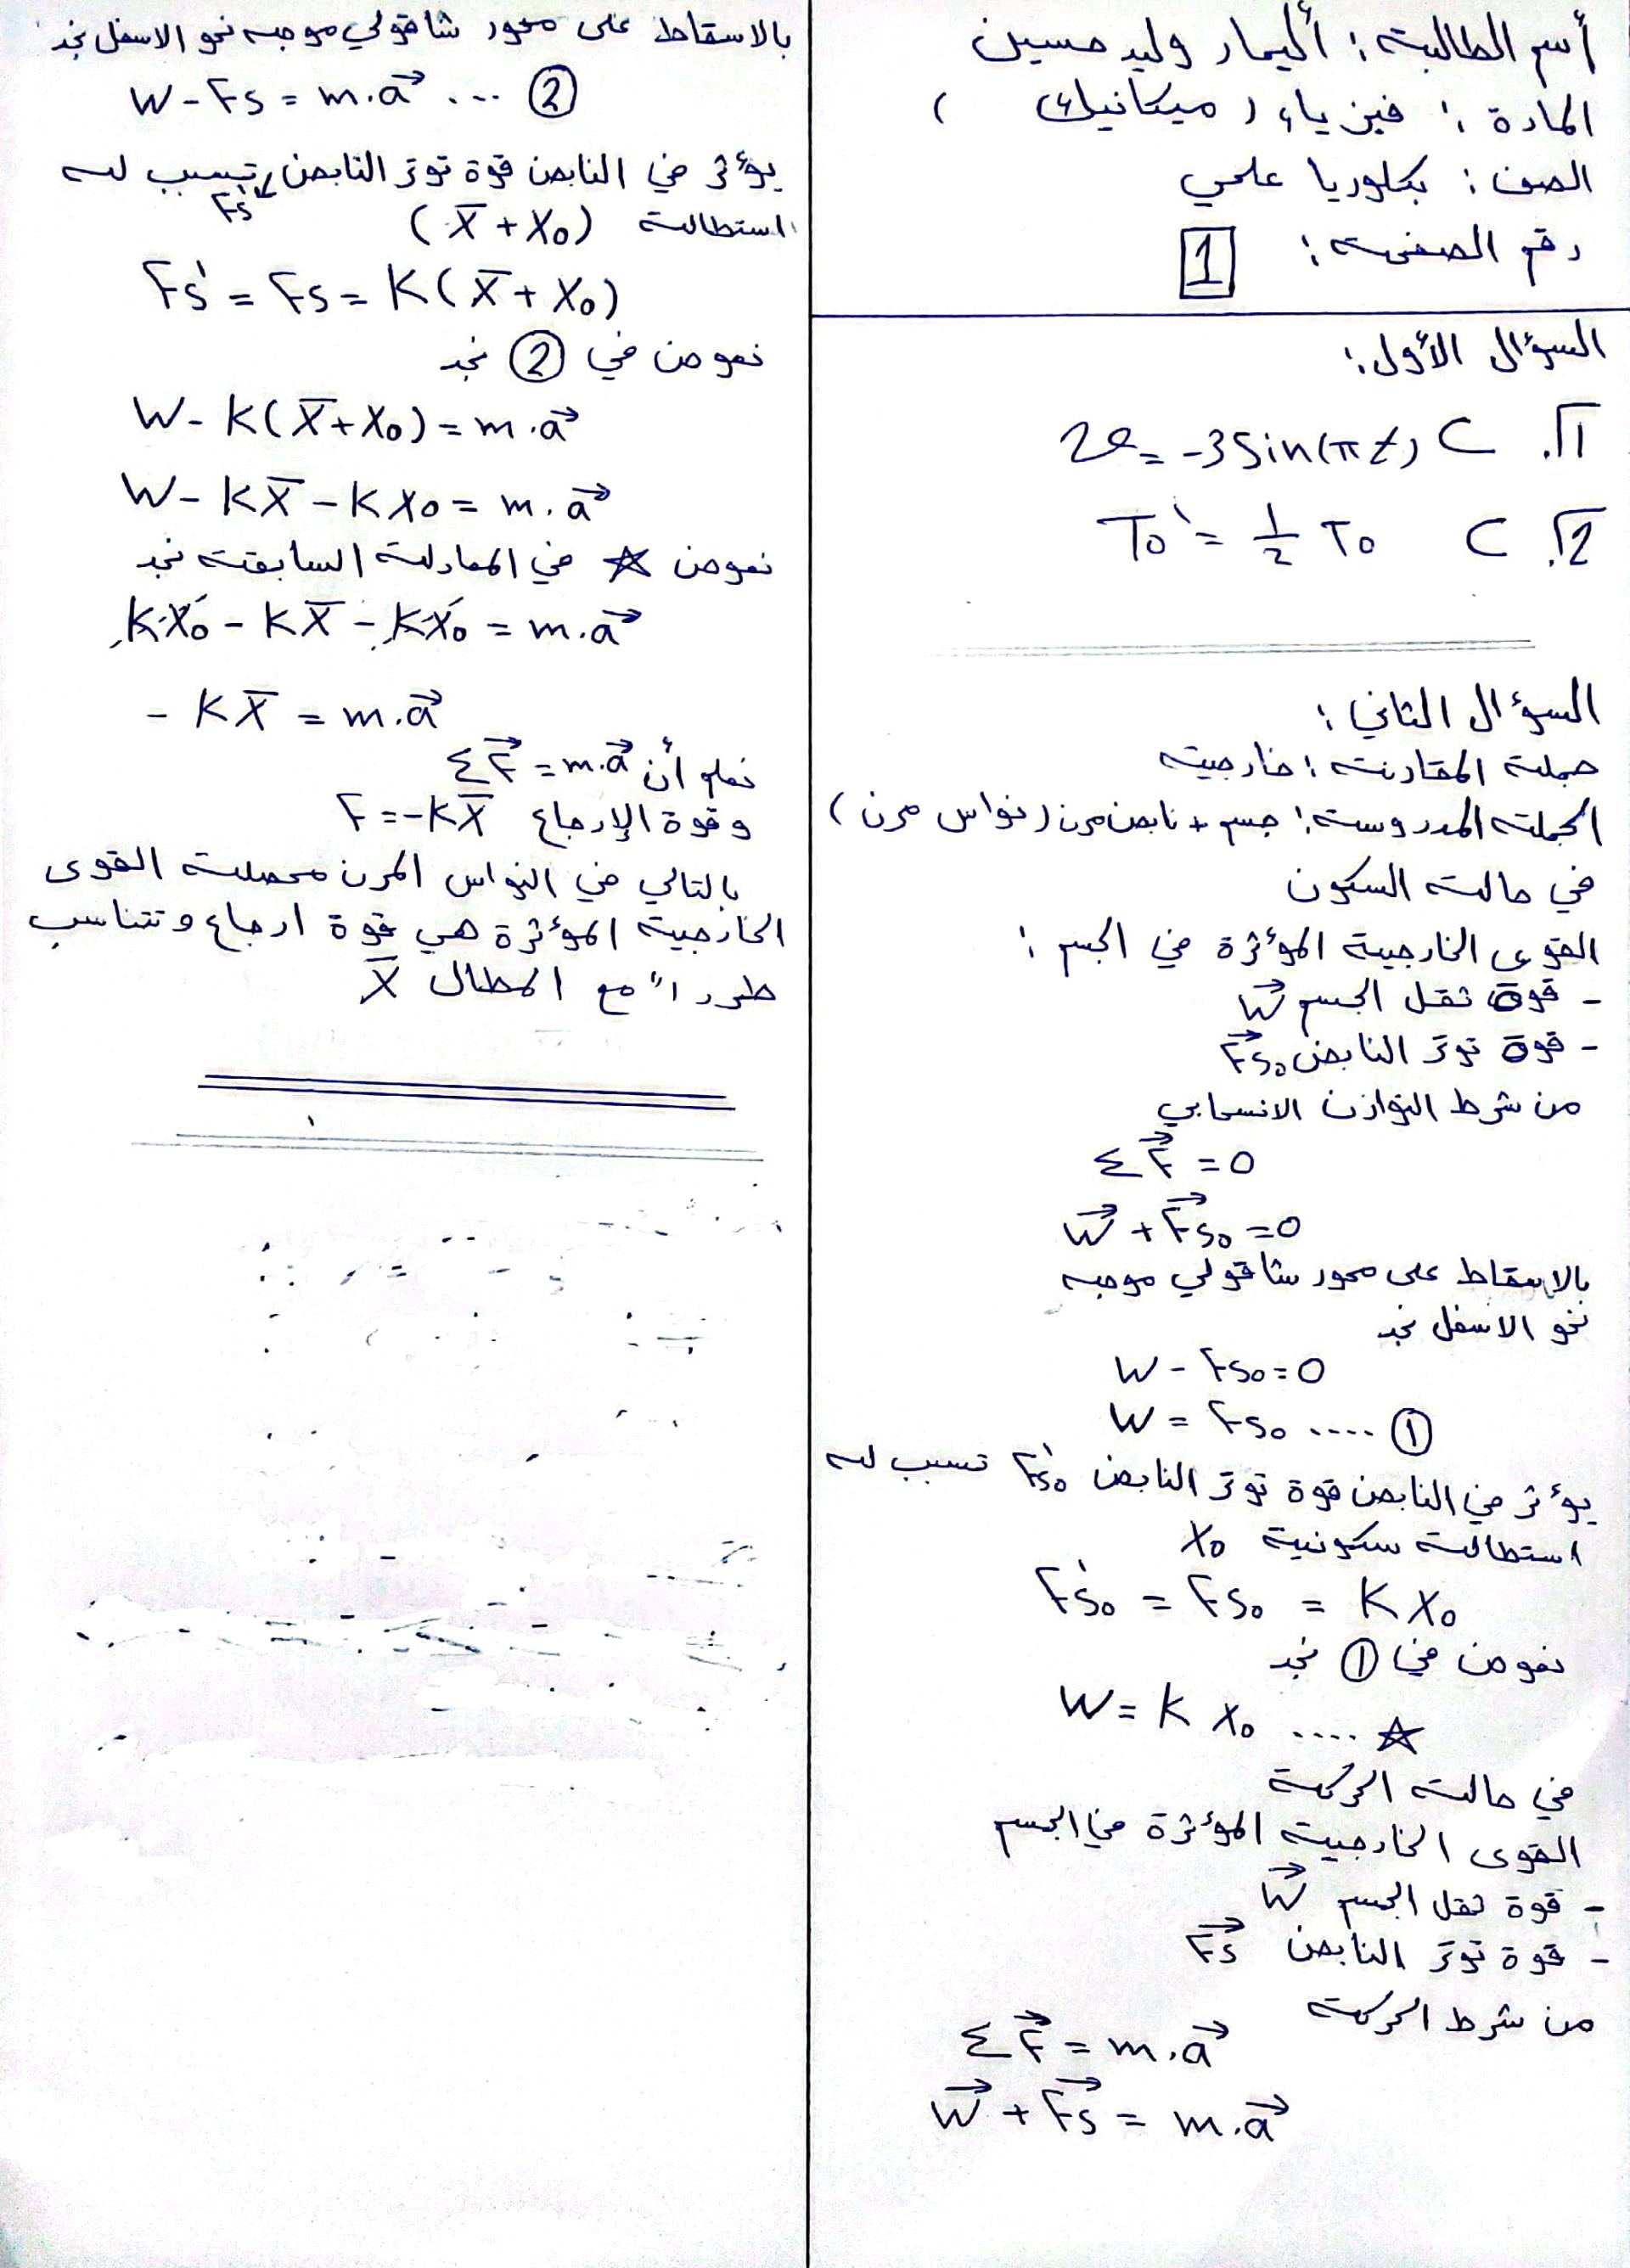 أسم الطالبة: أليمار وليد حسين
المادة: فيزياء (ميكانيك)
الصف: بكلوريا علمي
رقم الصفحة: 1
السؤال الأول:
1. C v = -3 sin(πt)
2. C T₀' = 1/2 T₀
السؤال الثاني:
جملة المقارنة: خارجية
الجملة المدروسة: جسم + نابض مرن (نواس مرن)
في حالة السكون
القوى الخارجية المؤثرة في الجسم:
- قوة ثقل الجسم W⃗
- قوة توتر النابض F⃗s₀
من شرط التوازن الانسحابي
ΣF⃗ = 0
W⃗ + F⃗s₀ = 0
بالاسقاط على محور شاقولي موجه
نحو الاسفل نجد
W - Fs₀ = 0
W = Fs₀ .... ①
يؤثر في النابض قوة توتر النابض F's₀ تسبب له
استطالة سكونية X₀
F's₀ = Fs₀ = K X₀
نعوض في ① نجد
W = K X₀ .... ☆
في حالة الحركة
القوى الخارجية المؤثرة في الجسم
- قوة ثقل الجسم W⃗
- قوة توتر النابض F⃗s
من شرط الحركة
ΣF⃗ = m.a⃗
W⃗ + F⃗s = m.a⃗
بالاسقاط على محور شاقولي موجه نحو الاسفل نجد
W - Fs = m.a⃗ ... ②
يؤثر في النابض قوة توتر النابض F's تسبب له
استطالة (X̅ + X₀)
Fs' = Fs = K(X̅ + X₀)
نعوض في ② نجد
W - K(X̅ + X₀) = m.a⃗
W - KX̅ - KX₀ = m.a⃗
نعوض ☆ في المعادلة السابقة نجد
KX₀ - KX̅ - KX₀ = m.a⃗
- KX̅ = m.a⃗
نعلم أن ΣF⃗ = m.a⃗
وقوة الإرجاع F = -KX̅
بالتالي في النواس المرن محصلة القوى
الخارجية المؤثرة هي قوة ارجاع وتتناسب
طرداً مع المطال X̅